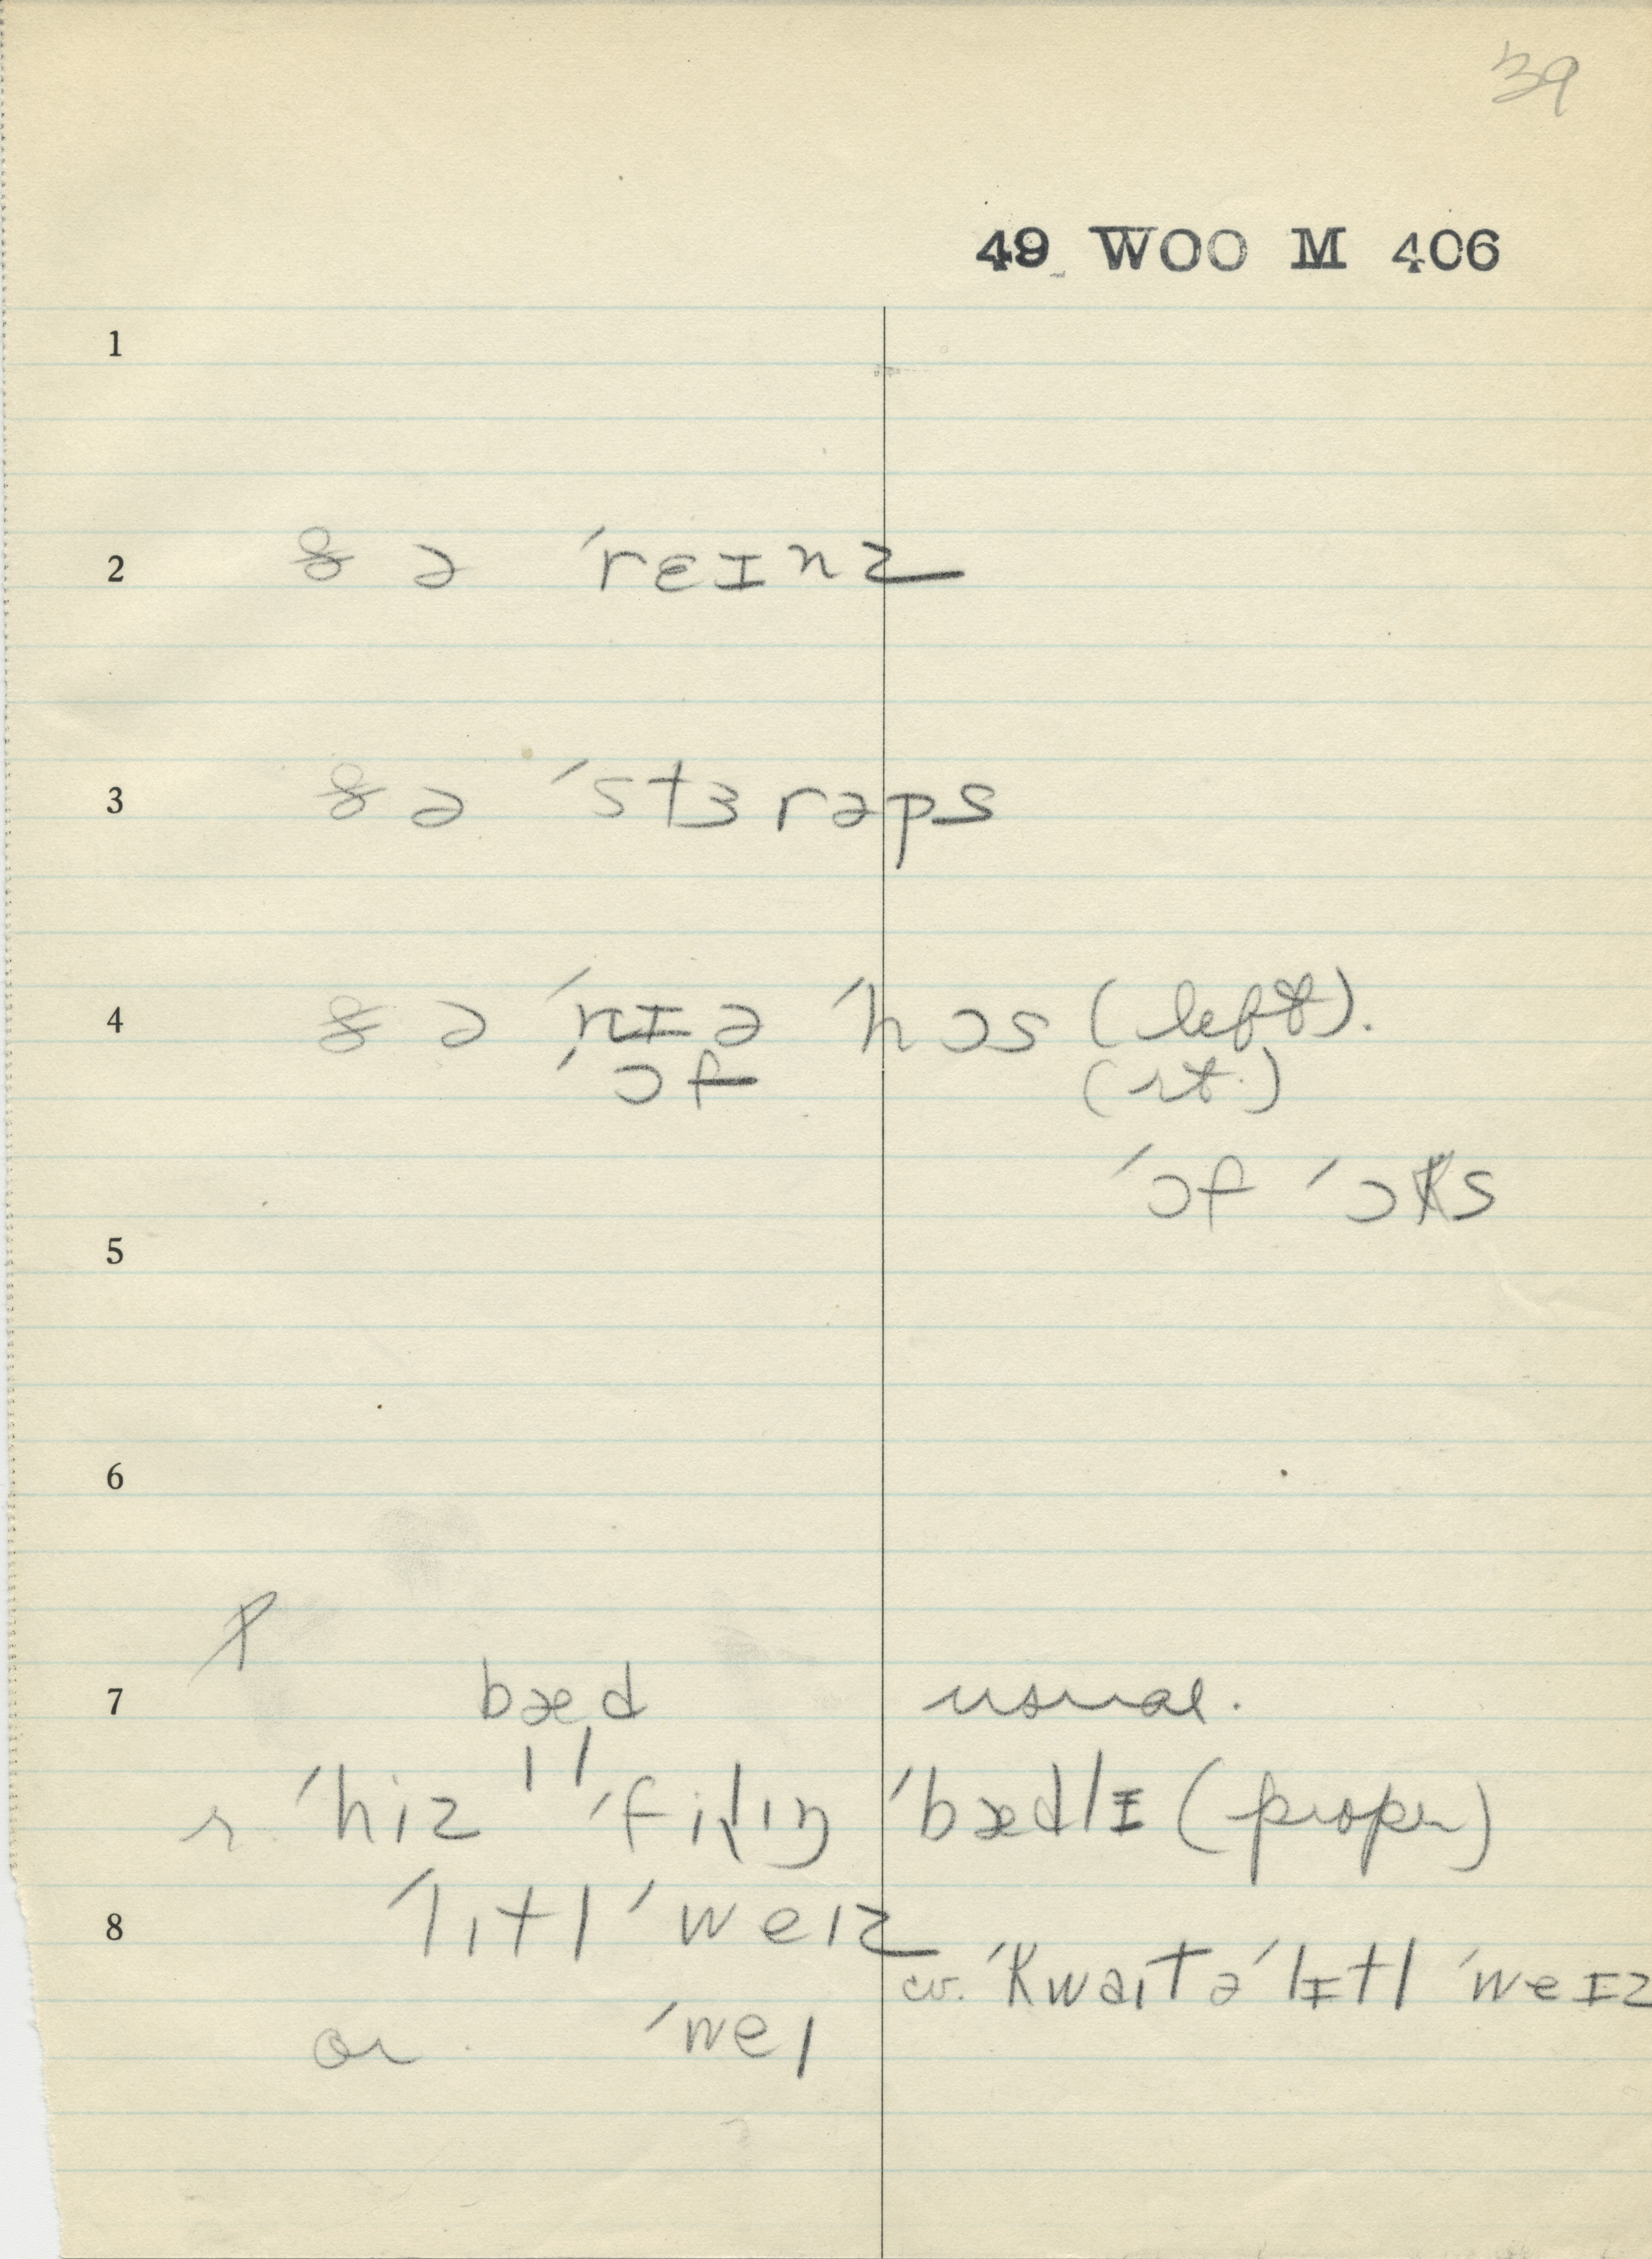 39
49 WOO M 406
1
2 ðə ˈrɛɪnz
3 ðə ˈstɜrəps
4 ðə ˈnɪə ˈhɔs (left).
ˈɔf (rt.)
ˈɔf ˈɔks
5
6
7 bæd usual.
r ˈhiz ˈfilɪŋ ˈbædlɪ (proper)
8 ˈlɪtl ˈweɪz
cv. ˈkwaɪt ə ˈlɪtl ˈweɪz
or ˈweɪ